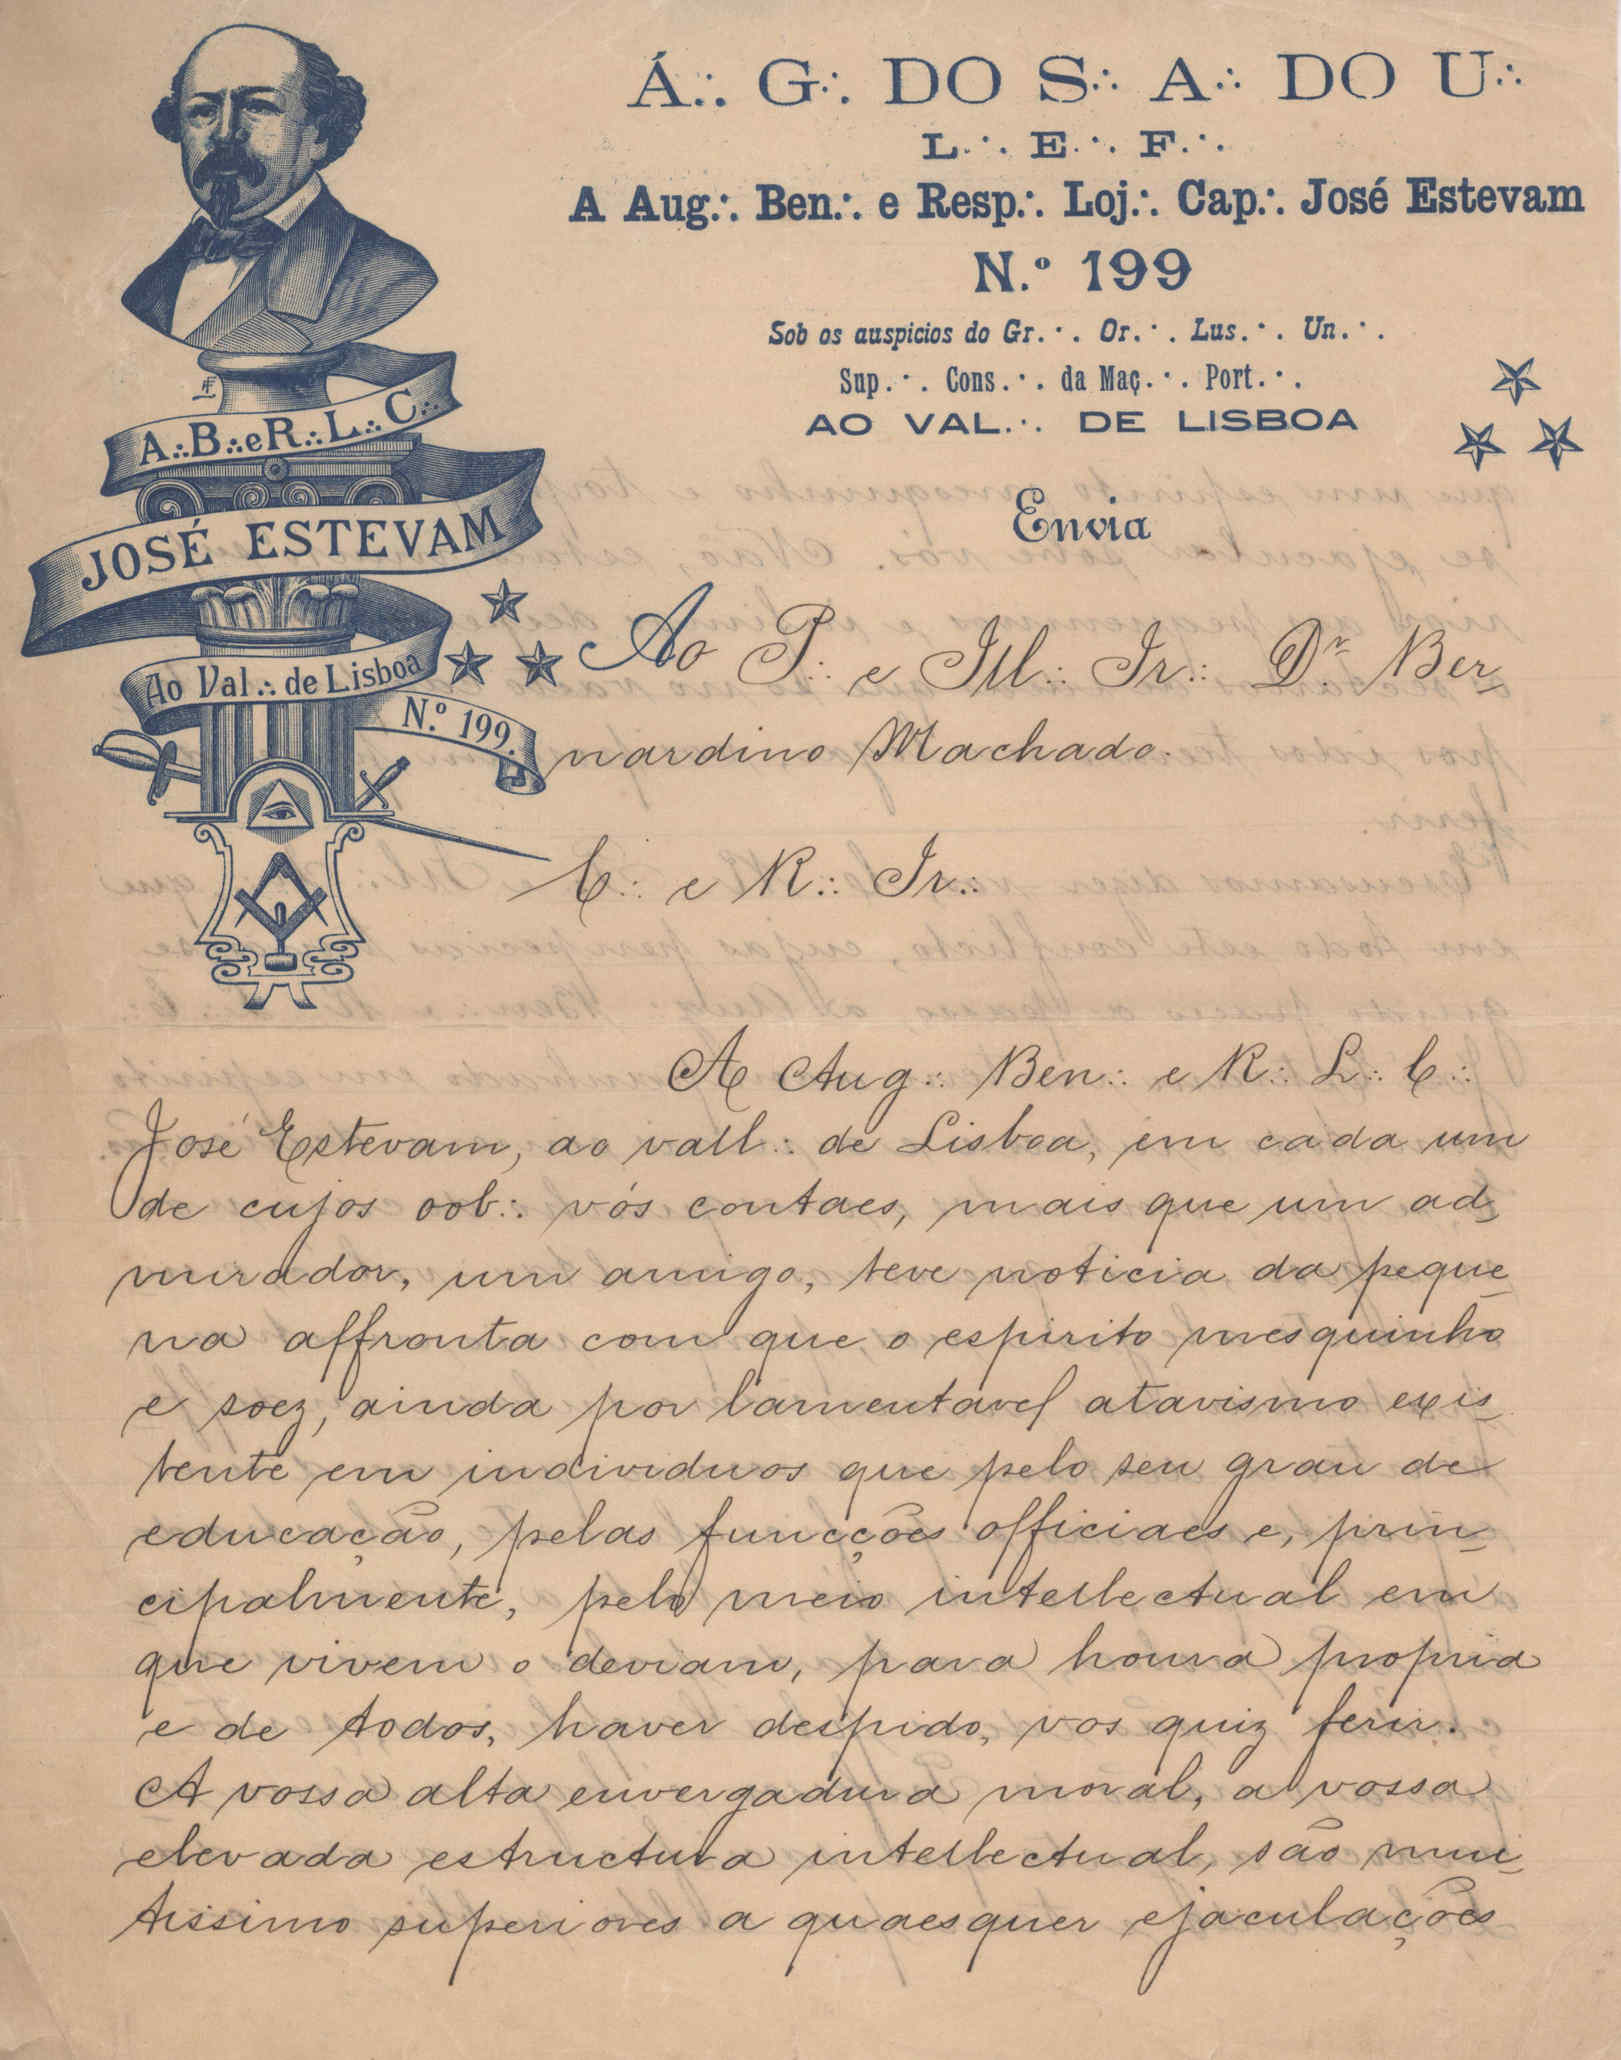 Á∴ G∴ DO S∴ A∴ DO U∴
L∴ E∴ F∴
A Aug∴ Ben∴ e Resp∴ Loj∴ Cap∴ José Estevam
N.º 199
Sob os auspicios do Gr∴ Or∴ Lus∴ Un∴
Sup∴ Cons∴ da Maç∴ Port∴
AO VAL∴ DE LISBOA
Envia
A∴B∴eR∴L∴C∴
JOSÉ ESTEVAM
Ao Val∴ de Lisboa
N.º 199.
Ao P∴ e Ill∴ Ir∴ Dr. Ber-
nardino Machado.
C∴ e R∴ Ir∴
A Aug∴ Ben∴ e R∴ L∴ C∴
José Estevam, ao vall∴ de Lisboa, em cada um
de cujos oob∴ vós contaes, mais que um ad-
mirador, um amigo, teve noticia da peque-
na affronta com que o espirito mesquinho
e soez, ainda por lamentavel atavismo exis-
tente em individuos que pelo seu grau de
educação, pelas funcções officiaes e, prin-
cipalmente, pelo meio intellectual em
que vivem o deviam, para honra propria
e de todos, haver despido, vos quiz ferir.
A vossa alta envergadura moral, a vossa
elevada estructura intellectual, são mui-
tissimo superiores a quaesquer ejaculações